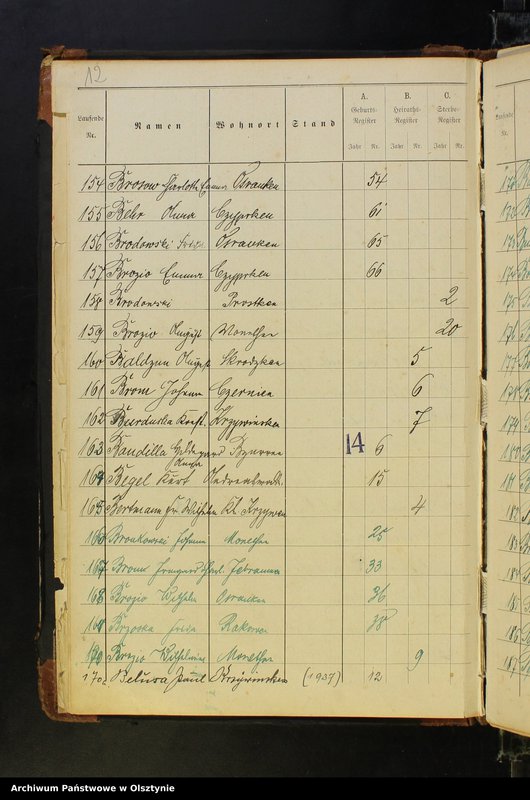 12
Laufende Nr. Namen Wohnort Stand A. Geburts-Register B. Heiraths-Register C. Sterbe-Register
Jahr Nr. Jahr Nr. Jahr Nr.
154 Brosow Charlotte Emma Ostrauken 54
155 Behr Anna Czyprken 61
156 Brodowski Frida Ostrauken 65
157 Brozio Emma Czyprken 66
158 Brodowski Prostken 2
159 Brozio August Monethen 20
160 Baldzun August Skrodzken 5
161 Brom Johann Czernien 6
162 Krzywinsken 7
163 Baudilla Hildegard 14 6
164 Begel Kurt 15
165 Bertmann Fr. Wilhelm Kl. 4
166 Bronkowski Johann Monethen 25
167 Brom Irmgard 33
168 Brozio Wilhelm Ostrauken 36
169 Brzoska Frieda Rakowen 38
Brozio Wilhelmine Monethen 9
170 Belusa Paul Krzywinsken (1907) 12
Archiwum Państwowe w Olsztynie